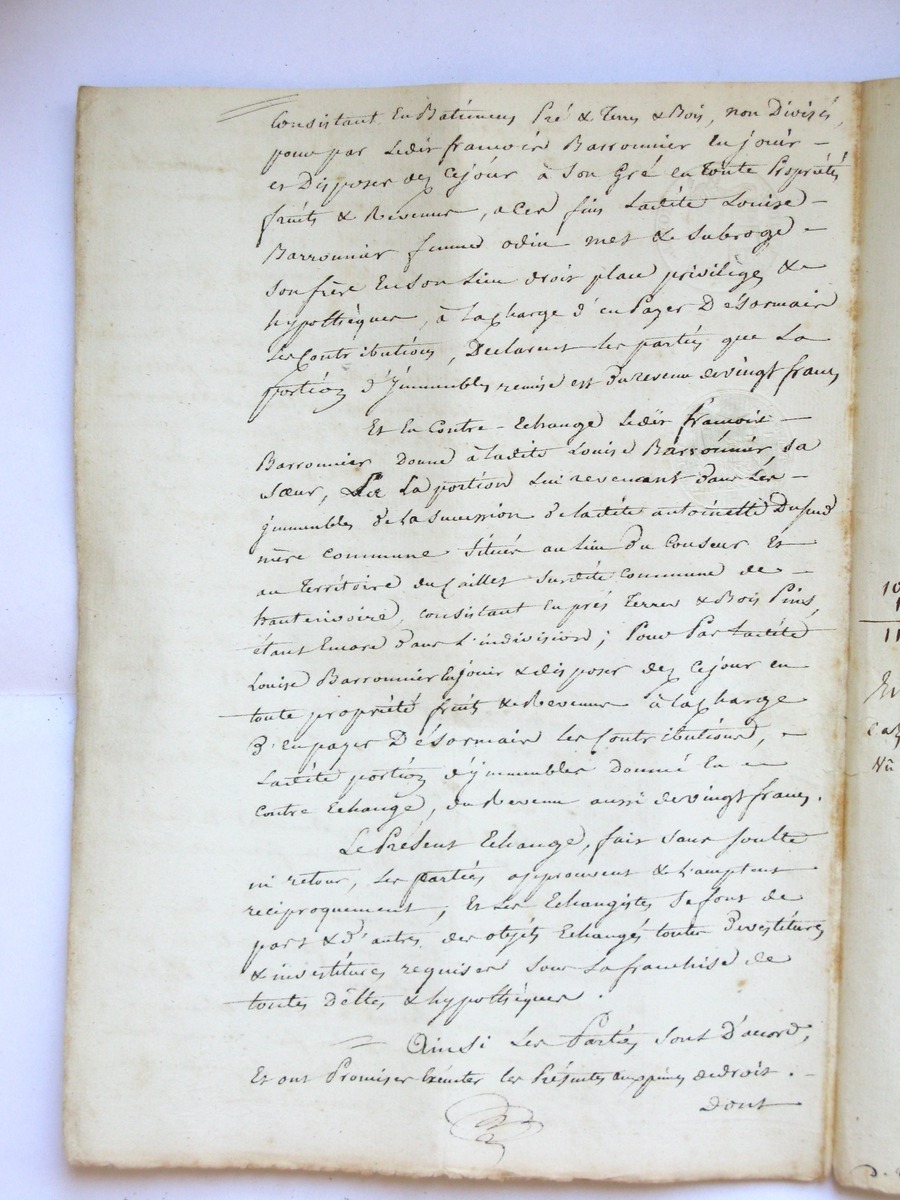 Consistant En Batimens Pré & Terres & Bois, non Divisés,
pour par Ledit francois Barronnier En jouir -
et Disposer dez Cejour à Son Gré en toute Propriétés
fruits & Revenus, a Ces fins Ladite Louise -
Barronnier femme odin met & Subroge -
Son frère En Son Lieu droit place privilèges &
hypothèques, à La Charge d'en Payer Désormais
Les Contributions, Declarent les parties que La
portion d'Jmmeubles remise est du revenu de vingt francs
Et En Contre-Echange Ledit francois -
Barronnier donne à Ladite Louise Barronnier, Sa
Sœur, La portion Lui revenant dans Les -
jmmeubles de La Succession de Ladite antoinette
mère commune Situés au Lieu du Et
au Territoire du Caillet Susdite Commune de -
hauterivoire, Consistant En prés Terres & Bois Pins,
étant Encore dans L'indivision; Pour Par Ladite
Louise Barronnier En jouir & disposer dez Cejour en
toute propriété fruits & Revenus à La Charge
D'en payer Désormais les Contributions, -
Ladite portion d'jmmeubles donnée En -
Contre Echange, du Revenu aussi de vingt francs.
Le Présent Echange, fait Sans Soulte
ni retour, Les parties approuvent & L'acceptent
réciproquement; Et Les Echangistes Se font de
part & D'autres des objets Echangés toutes Devestitures
& investitures requises Sous La franchise de
toutes Dêttes & hypothèques.
Ainsi Les Parties Sont D'accord,
Et ont Promis Exécuter les Présentes aux peines de droit. -
Dont
10
1
11